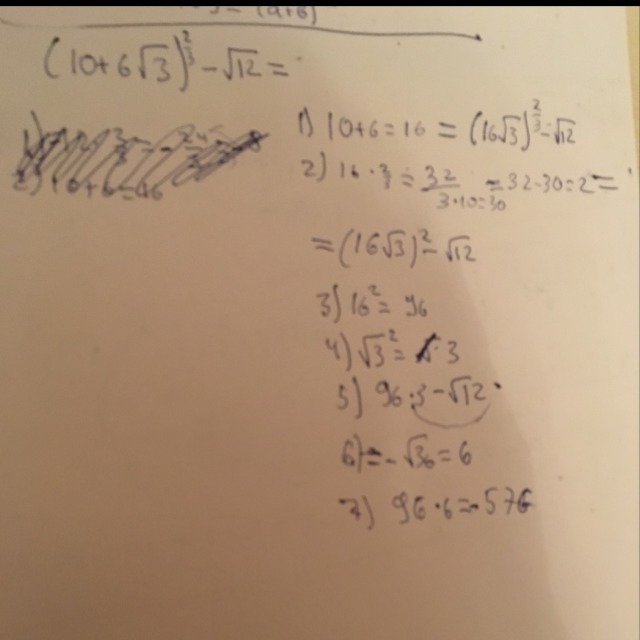 (a+b)
(10+6√3)^(2/3) - √12 =
1) 10+6=16 = (16√3)^(2/3) - √12
2) 16 · 2/3 = 32/3·10=30 = 32-30=2 =
= (16√3)^2 - √12
3) 16^2 = 96
4) √3^2 = 3
5) 96·3-√12
6) = -√36 = 6
7) 96·6=-576